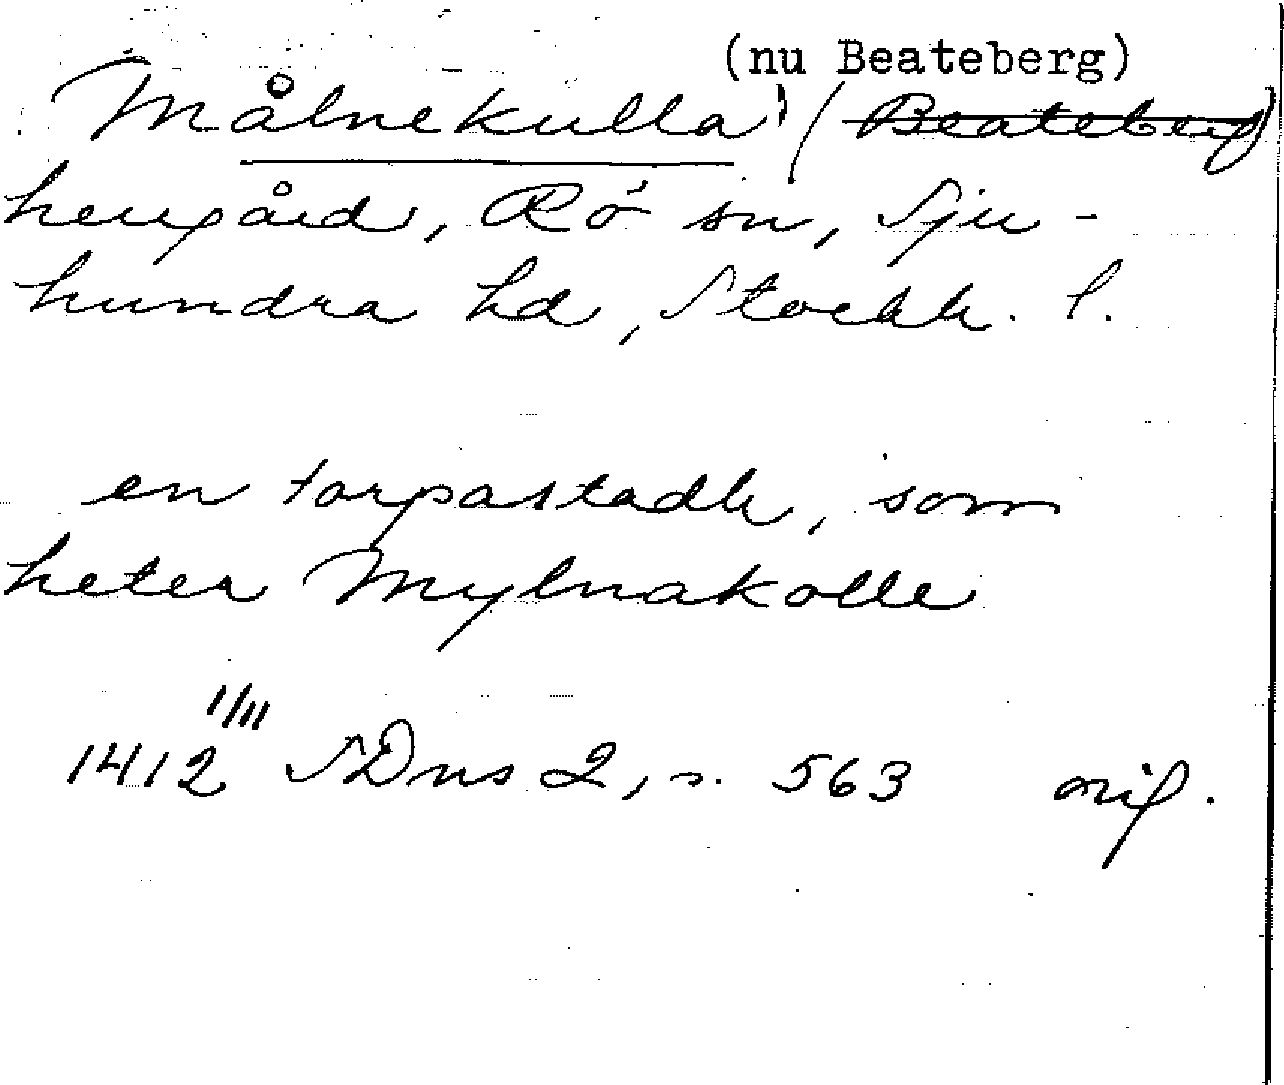 (nu Beateberg)
Målnekulla (Beateberg)
herrgård, Rö sn, Sju-
hundra hd, Stockh. l.
en torpastadh, som
heter Mylnakolle
1412 1/III SDns 2, s. 563 orig.